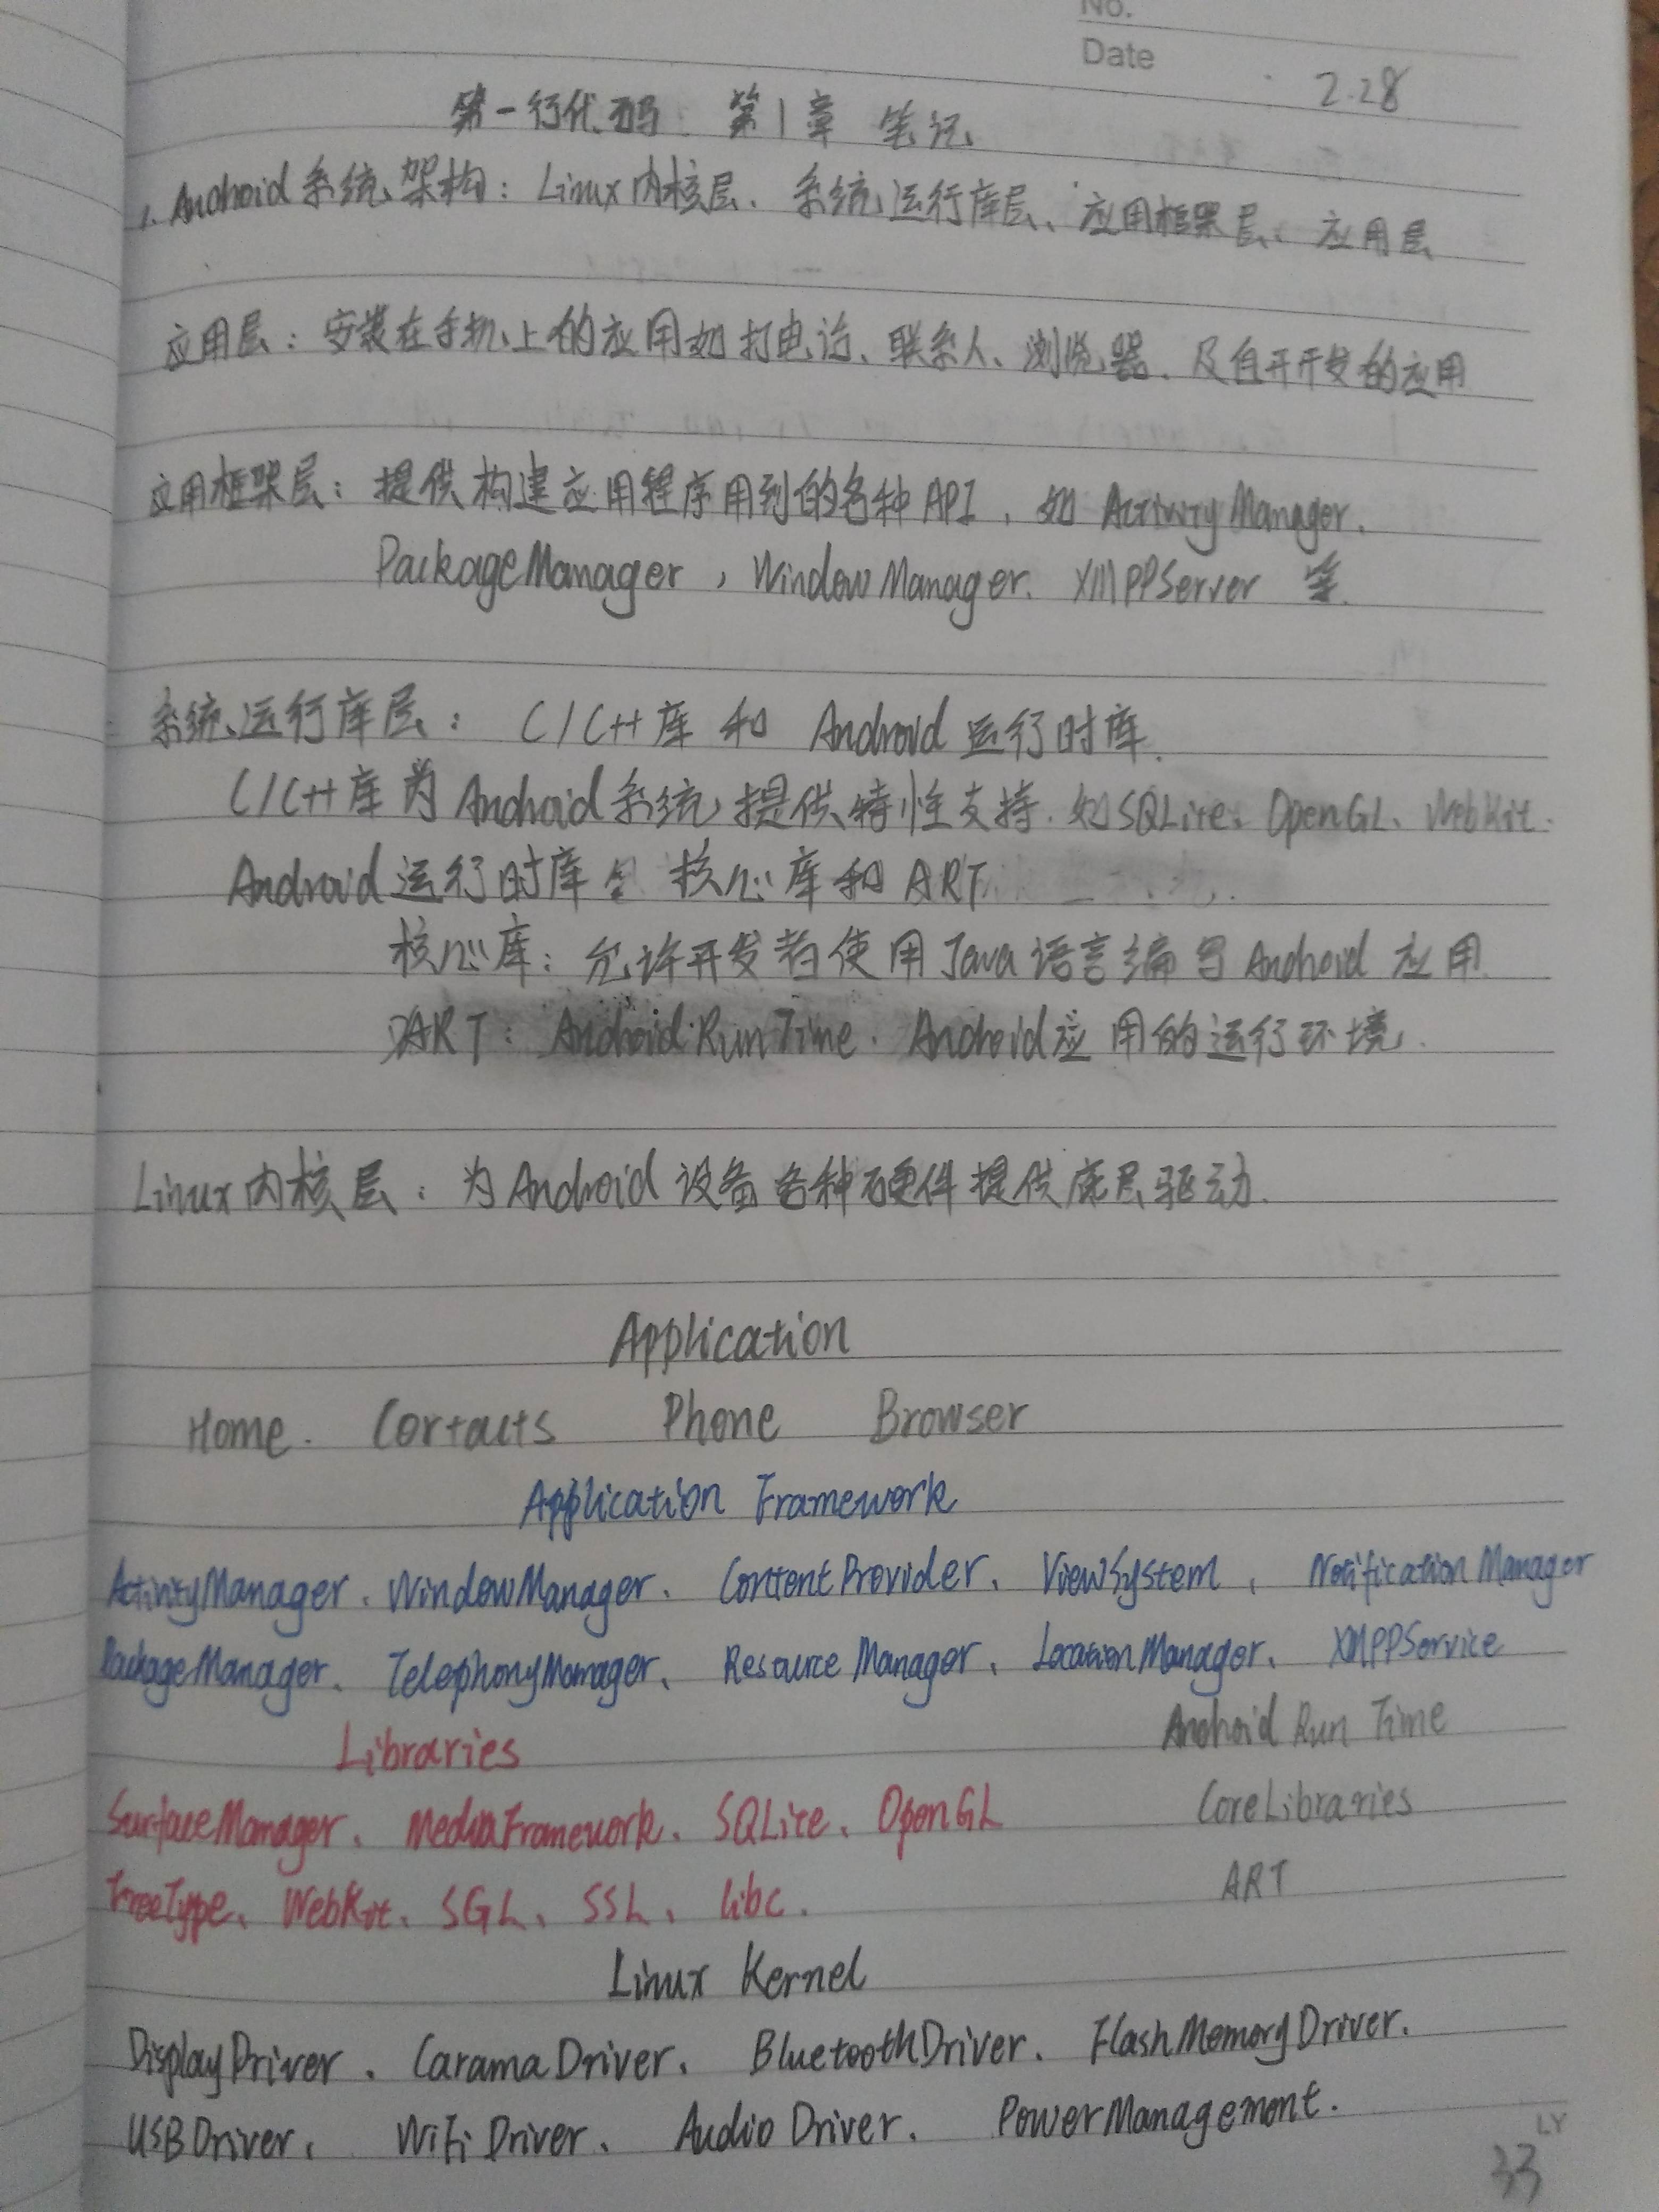 No.
Date 2.28
第一行代码 第1章 笔记
1. Android系统架构：Linux内核层、系统运行库层、应用框架层、应用层
应用层：安装在手机上的应用如打电话、联系人、浏览器、及自开开发的应用
应用框架层：提供构建应用程序用到的各种API，如 ActivityManager、
PackageManager，WindowManager、XMPPServer 等
系统运行库层：C/C++库 和 Android 运行时库
C/C++库为Android系统提供特性支持. 如SQLite、OpenGL、WebKit.
Android运行时库 核心库和ART
核心库：允许开发者使用Java语言编写Android应用
ART：Android RunTime. Android应用的运行环境.
Linux内核层：为Android设备各种硬件提供底层驱动.
Application
Home. Contacts Phone Browser
Application Framework
ActivityManager、WindowManager、ContentProvider、ViewSystem、NotificationManager
PackageManager、TelephonyManager、Resource Manager、LocationManager、XMPPService
Libraries Android Run Time
SurfaceManager、MediaFramework、SQLite、OpenGL CoreLibraries
FreeType、WebKit、SGL、SSL、libc. ART
Linux Kernel
DisplayDriver、CaramaDriver、BluetoothDriver、FlashMemoryDriver.
USBDriver、WiFiDriver、AudioDriver、PowerManagement.
LY
33